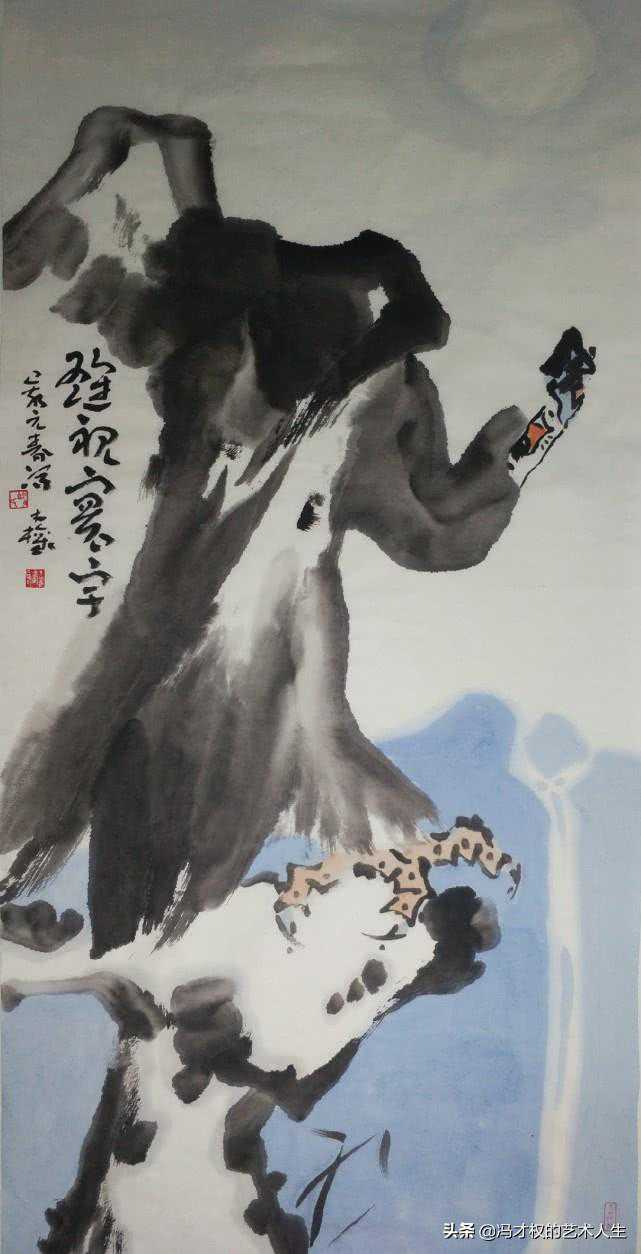 雄视寰宇
元春写
才权
头条 @冯才权的艺术人生